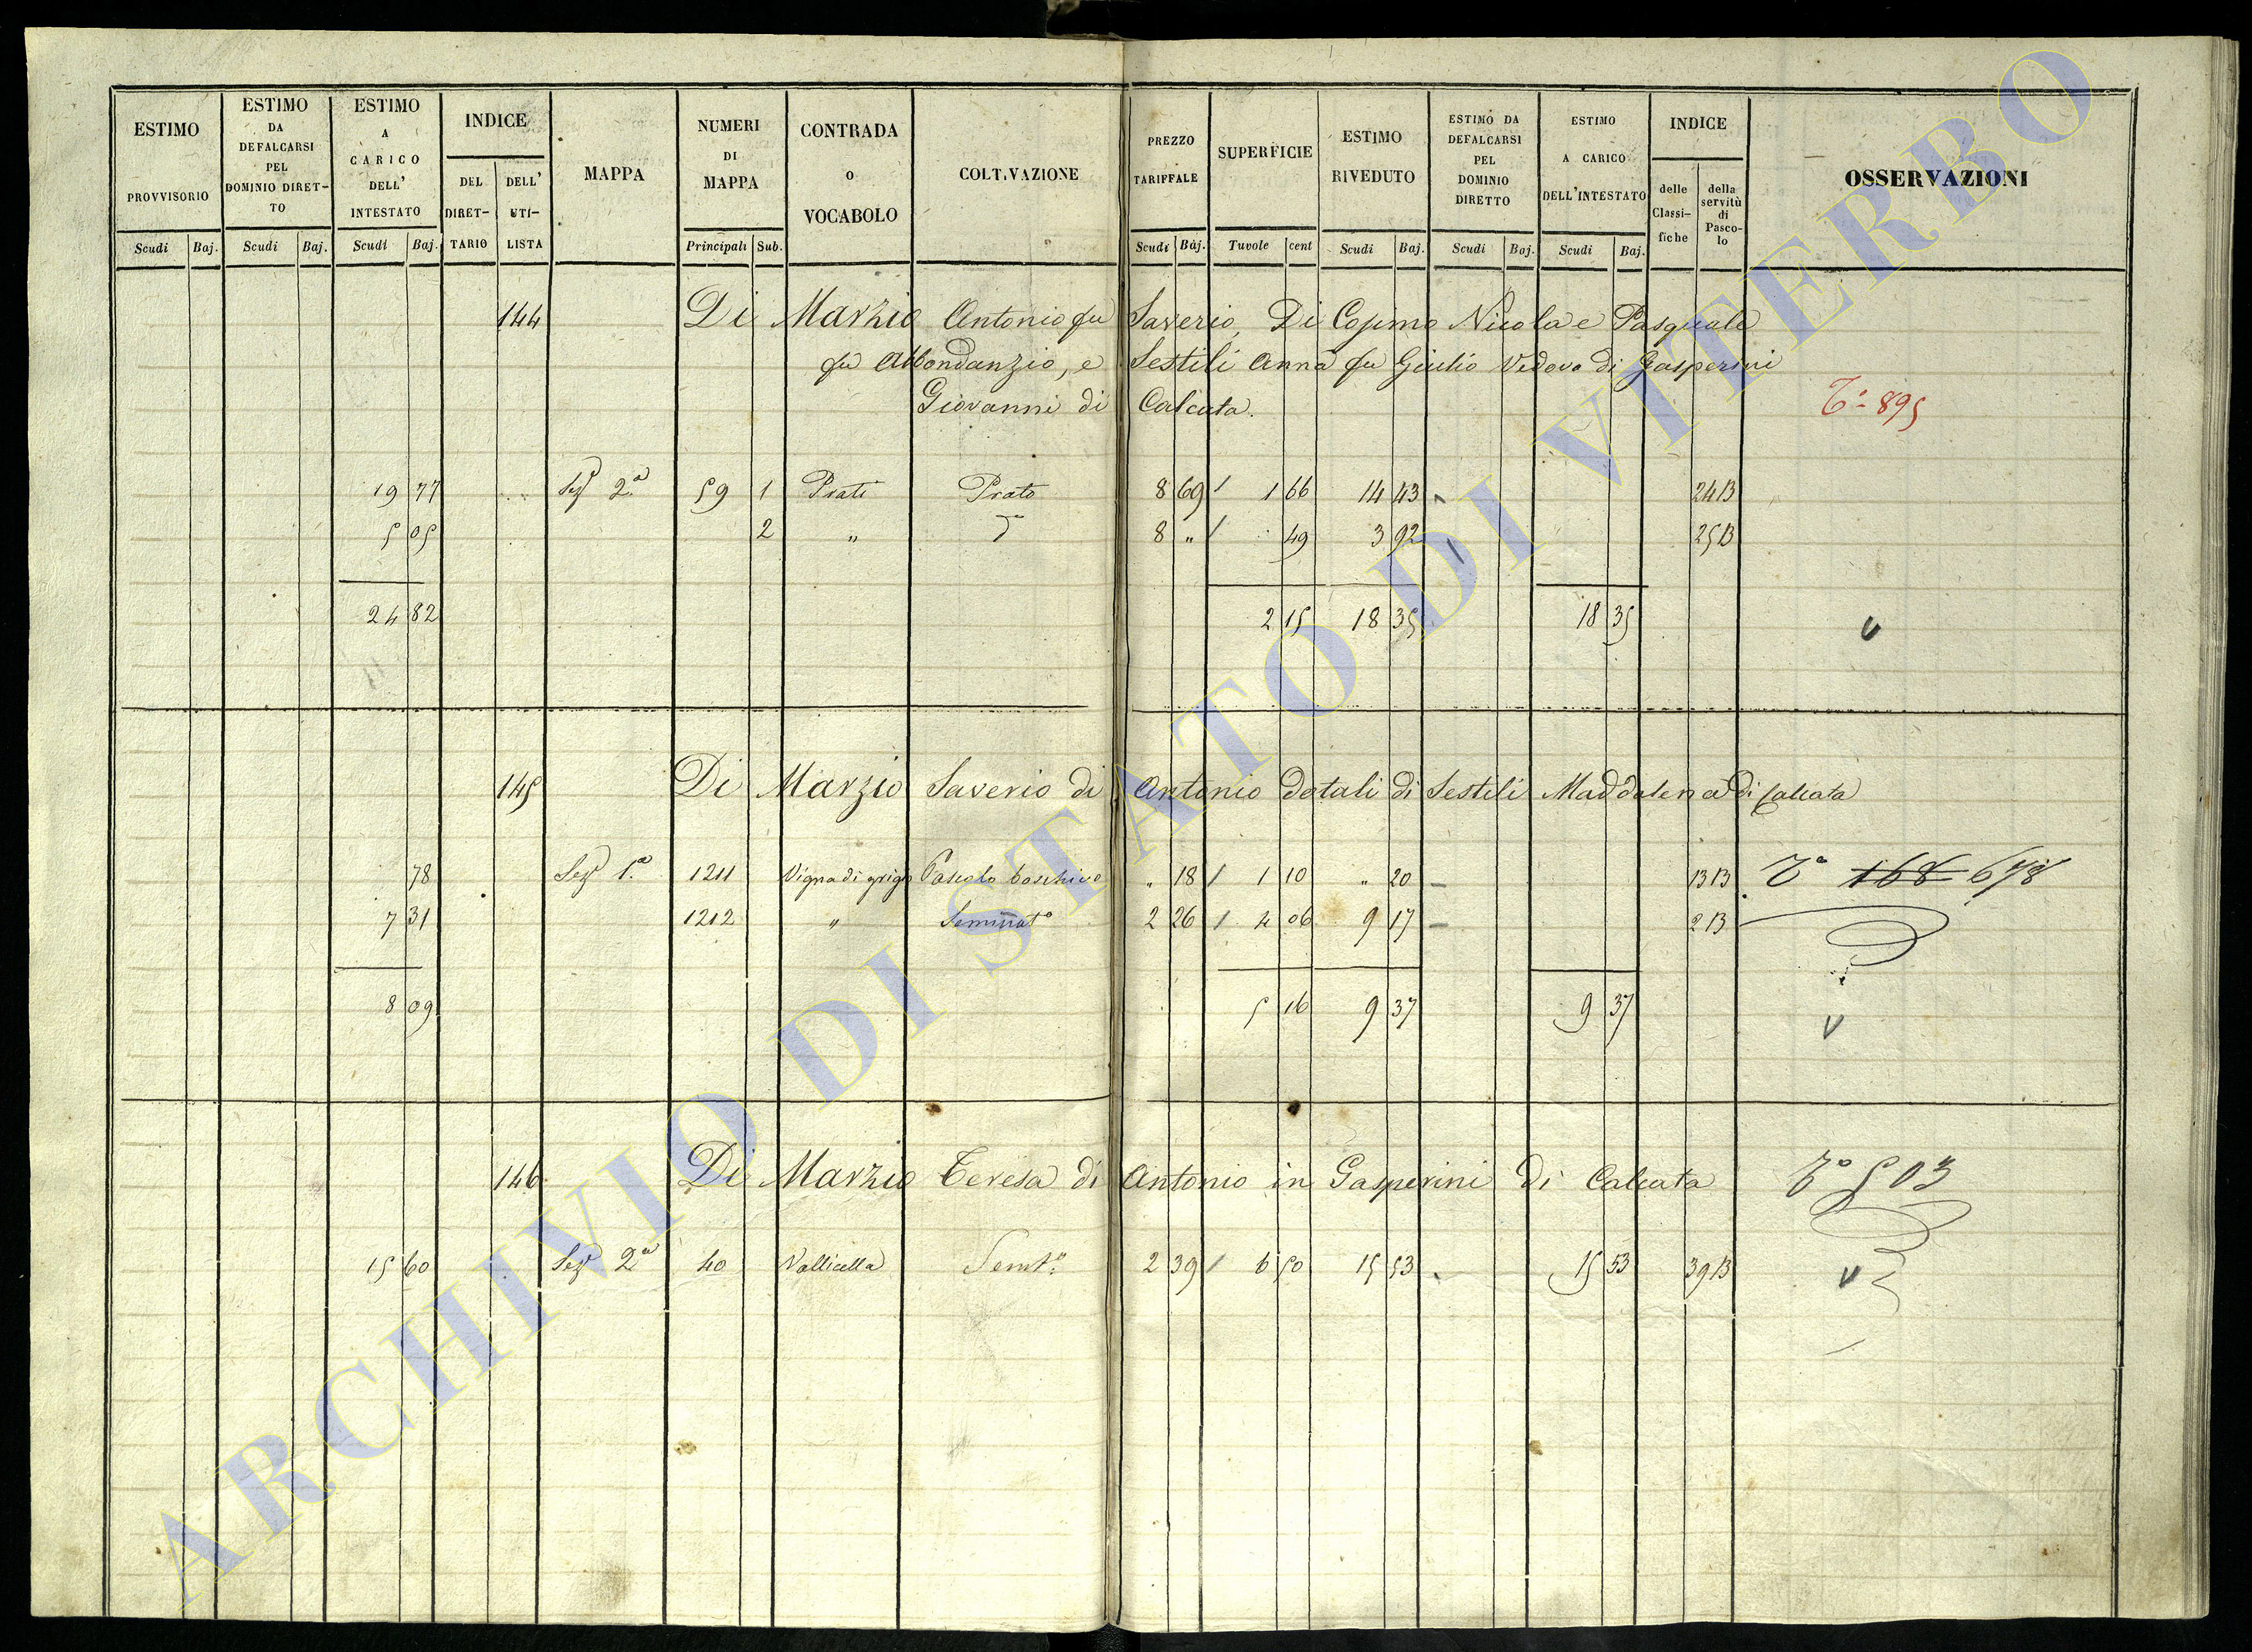 ESTIMO PROVVISORIO Scudi Baj.
ESTIMO DA DEFALCARSI PEL DOMINIO DIRET-TO Scudi Baj.
ESTIMO A CARICO DELL' INTESTATO Scudi Baj.
INDICE DEL DIRET-TARIO DELL' UTI-LISTA
MAPPA
NUMERI DI MAPPA Principali Sub.
CONTRADA O VOCABOLO
COLTIVAZIONE
PREZZO TARIFFALE Scudi Baj.
SUPERFICIE Tuvole cent
ESTIMO RIVEDUTO Scudi Baj.
ESTIMO DA DEFALCARSI PEL DOMINIO DIRETTO Scudi Baj.
ESTIMO A CARICO DELL'INTESTATO Scudi Baj.
INDICE delle Classi-fiche della servitù di Pasco-lo
OSSERVAZIONI
144 Di Marzio Antonio fu Saverio, Di Cosimo Nicola e Pasquale
fu Abbondanzio, e Sestili Anna fu Giulio Vedova di Gasperini
Giovanni di Calcata.
Tº 895
19 77 Sezᵉ 2ª 59 1 Prati Prato 8 69 1 66 14 43 24 13
5 05 2 " 8 " 49 3 92 25 13
24 82 2 15 18 35 18 35
145 Di Marzio Saverio di Antonio dotali di Sestili Maddalena di Calcata
78 Sezᵉ 1ª 1211 Vigna di grigo Pascolo boschivo " 18 1 10 " 20 13 13 Tº 168 678
7 31 1212 " Seminatº 2 26 4 06 9 17 2 13
8 09 5 16 9 37 9 37
146 Di Marzio Teresa di Antonio in Gasperini di Calcata Tº 503
15 60 Sezᵉ 2ª 40 Vallicella Semtº 2 39 6 50 15 53 15 53 39 13
ARCHIVIO DI STATO DI VITERBO